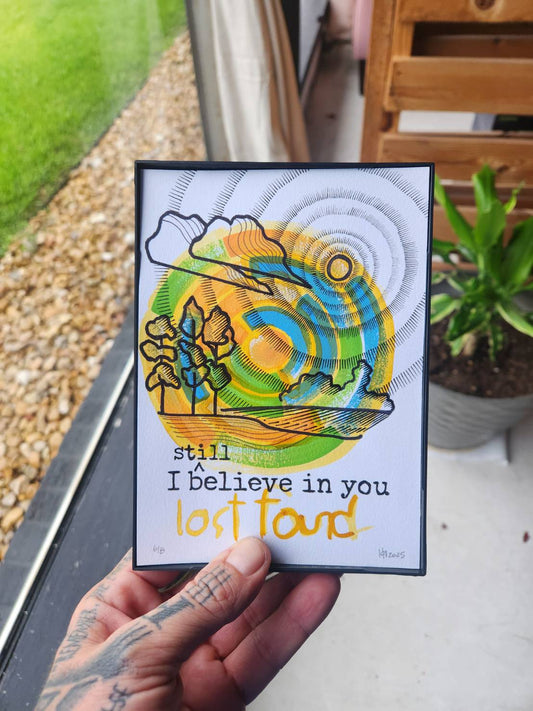 still
I ^ believe in you
lost found
6/8
2025